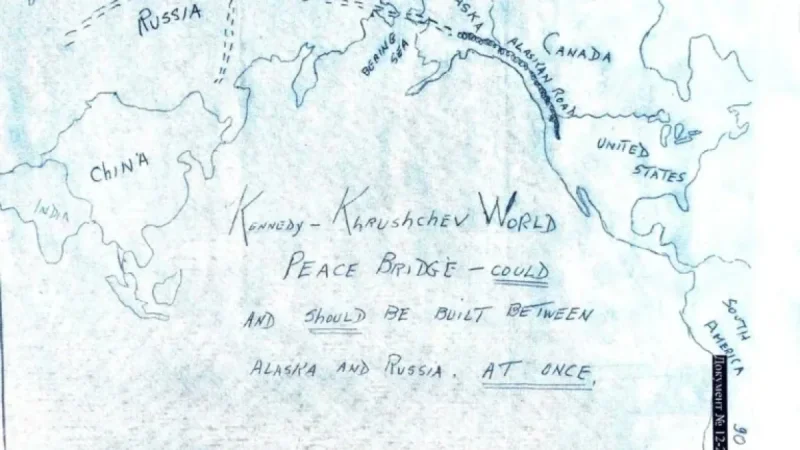 RUSSIA
BERING
SEA
ALASKAN ROAD
CANADA
UNITED
STATES
CHINA
INDIA
KENNEDY - KHRUSHCHEV WORLD
PEACE BRIDGE - COULD
AND SHOULD BE BUILT BETWEEN
ALASKA AND RUSSIA. AT ONCE.
SOUTH
AMERICA
Документ № 12-
90